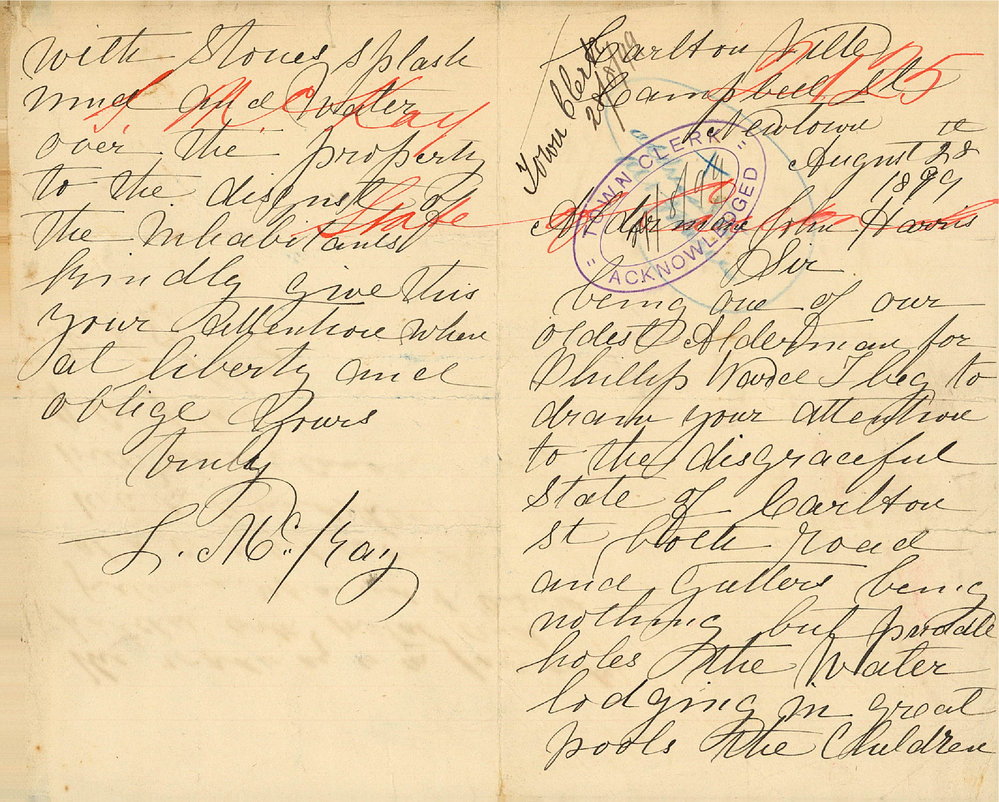 Carlton Ville
Campbell St
Newtown
August 28
1899
Alderman John Harris
Sir
being one of our
oldest Alderman for
Phillip Ward I beg to
draw your attention
to the disgraceful
State of Carlton
st both road
and gutters being
nothing but puddle
holes the Water
lodging in great
pools the Children
Town Clerk
TOWN CLERK
ACKNOWLEDGED
with Stones splash
mud and Water
over the property
to the disgust of
the Inhabitants
Kindly give this
your Attention when
at liberty and
oblige Yours
truly
L. McKay
L. McKay
State of